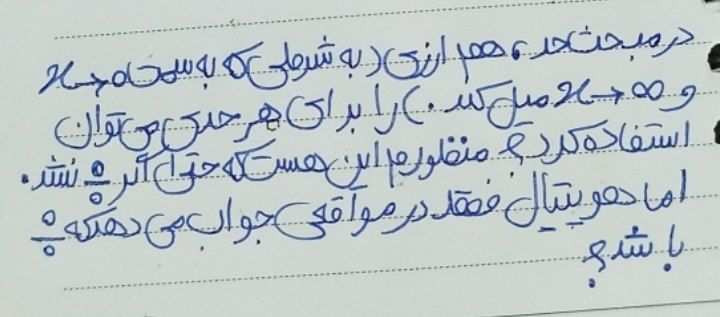 در مبحث حد، هم ارزی (به شرطی که به سمت x→0
و x→∞ میل کند.) را برای هر حدی می توان
استفاده کرد؟ منظورم این هست که حتی اگر 0/0 نشد.
اما هوپیتال فقط در مواقعی جواب می دهد که 0/0
باشد؟